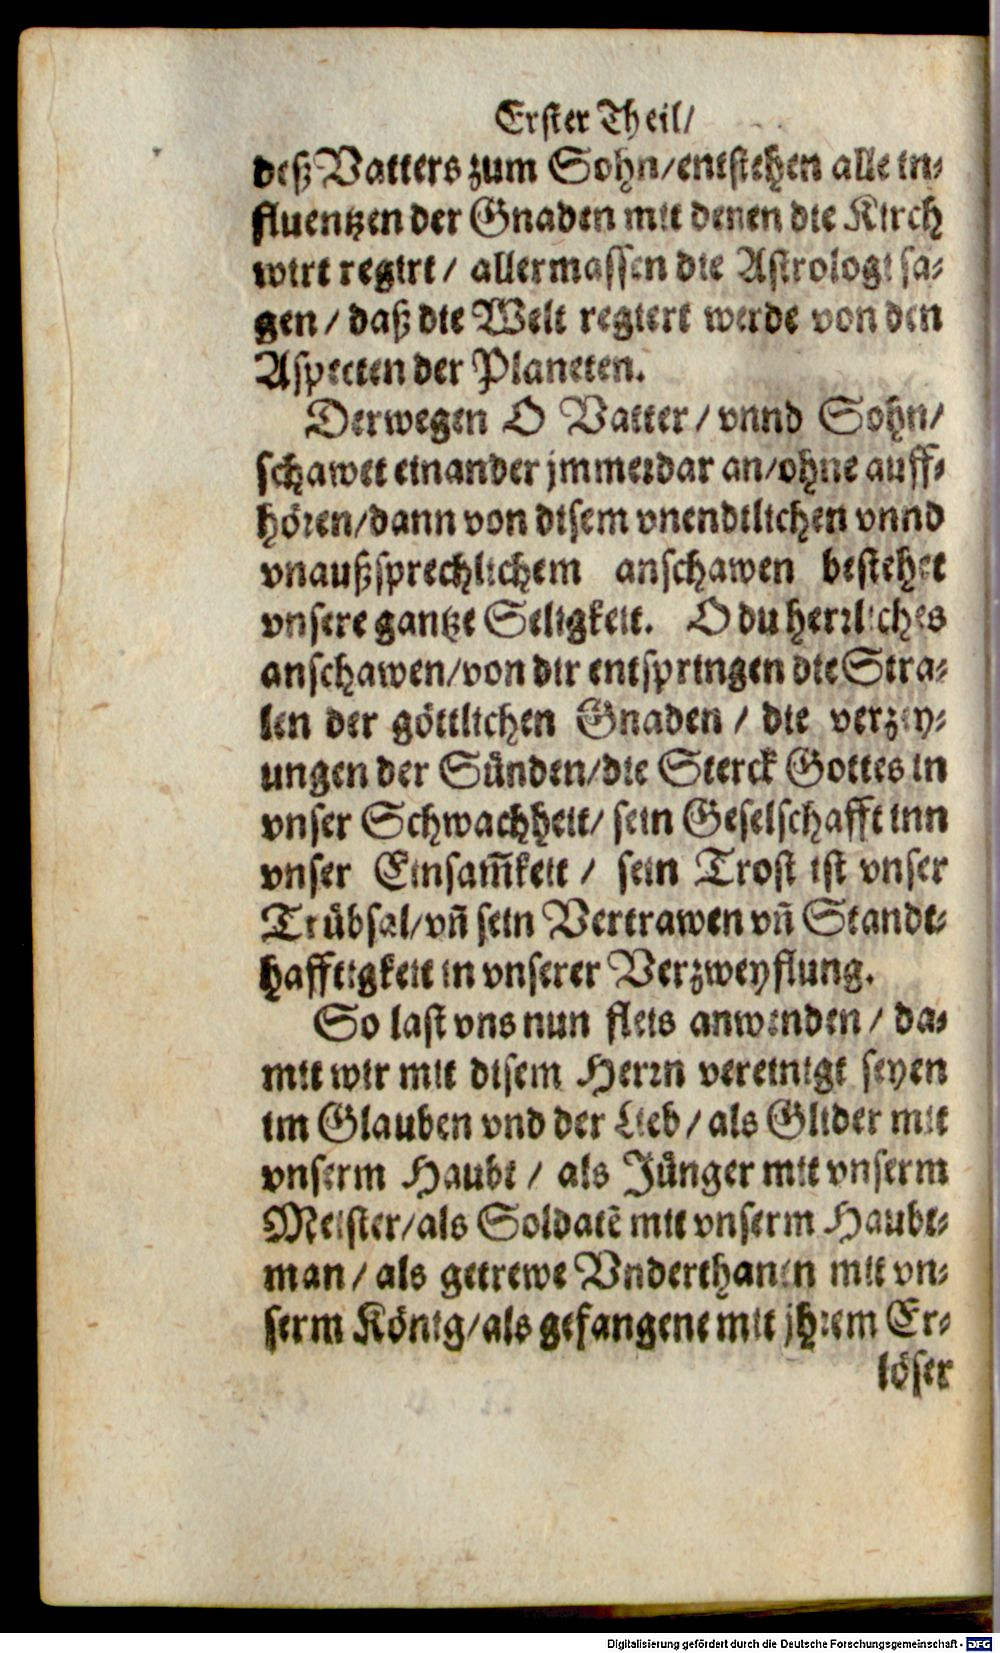 Erster Theil/
deß Vatters zum Sohn/entstehen alle in-
fluentzen der Gnaden mit denen die Kirch
wirt regirt/ allermassen die Astrologi sa-
gen/ daß die Welt regiert werde von den
Aspecten der Planeten.
Derwegen O Vatter/ vnnd Sohn/
schawet einander jmmerdar an/ohne auff-
hören/dann von disem vnendtlichen vnnd
vnaußsprechlichem anschawen bestehet
vnsere gantze Seligkeit. O du herrliches
anschawen/von dir entspringen die Stra-
len der göttlichen Gnaden/ die verzey-
ungen der Sünden/die Sterck Gottes in
vnser Schwachheit/ sein Geselschafft inn
vnser Einsam̃keit/ sein Trost ist vnser
Trübsal/vñ sein Vertrawen vñ Standt-
hafftigkeit in vnserer Verzweyflung.
So last vns nun fleis anwenden/ da-
mit wir mit disem Herrn vereinigt seyen
im Glauben vnd der Lieb/ als Glider mit
vnserm Haubt/ als Jünger mit vnserm
Meister/als Soldatẽ mit vnserm Haubt-
man/ als getrewe Vnderthanen mit vn-
serm König/als gefangene mit jhrem Er-
löser
Digitalisierung gefördert durch die Deutsche Forschungsgemeinschaft - DFG